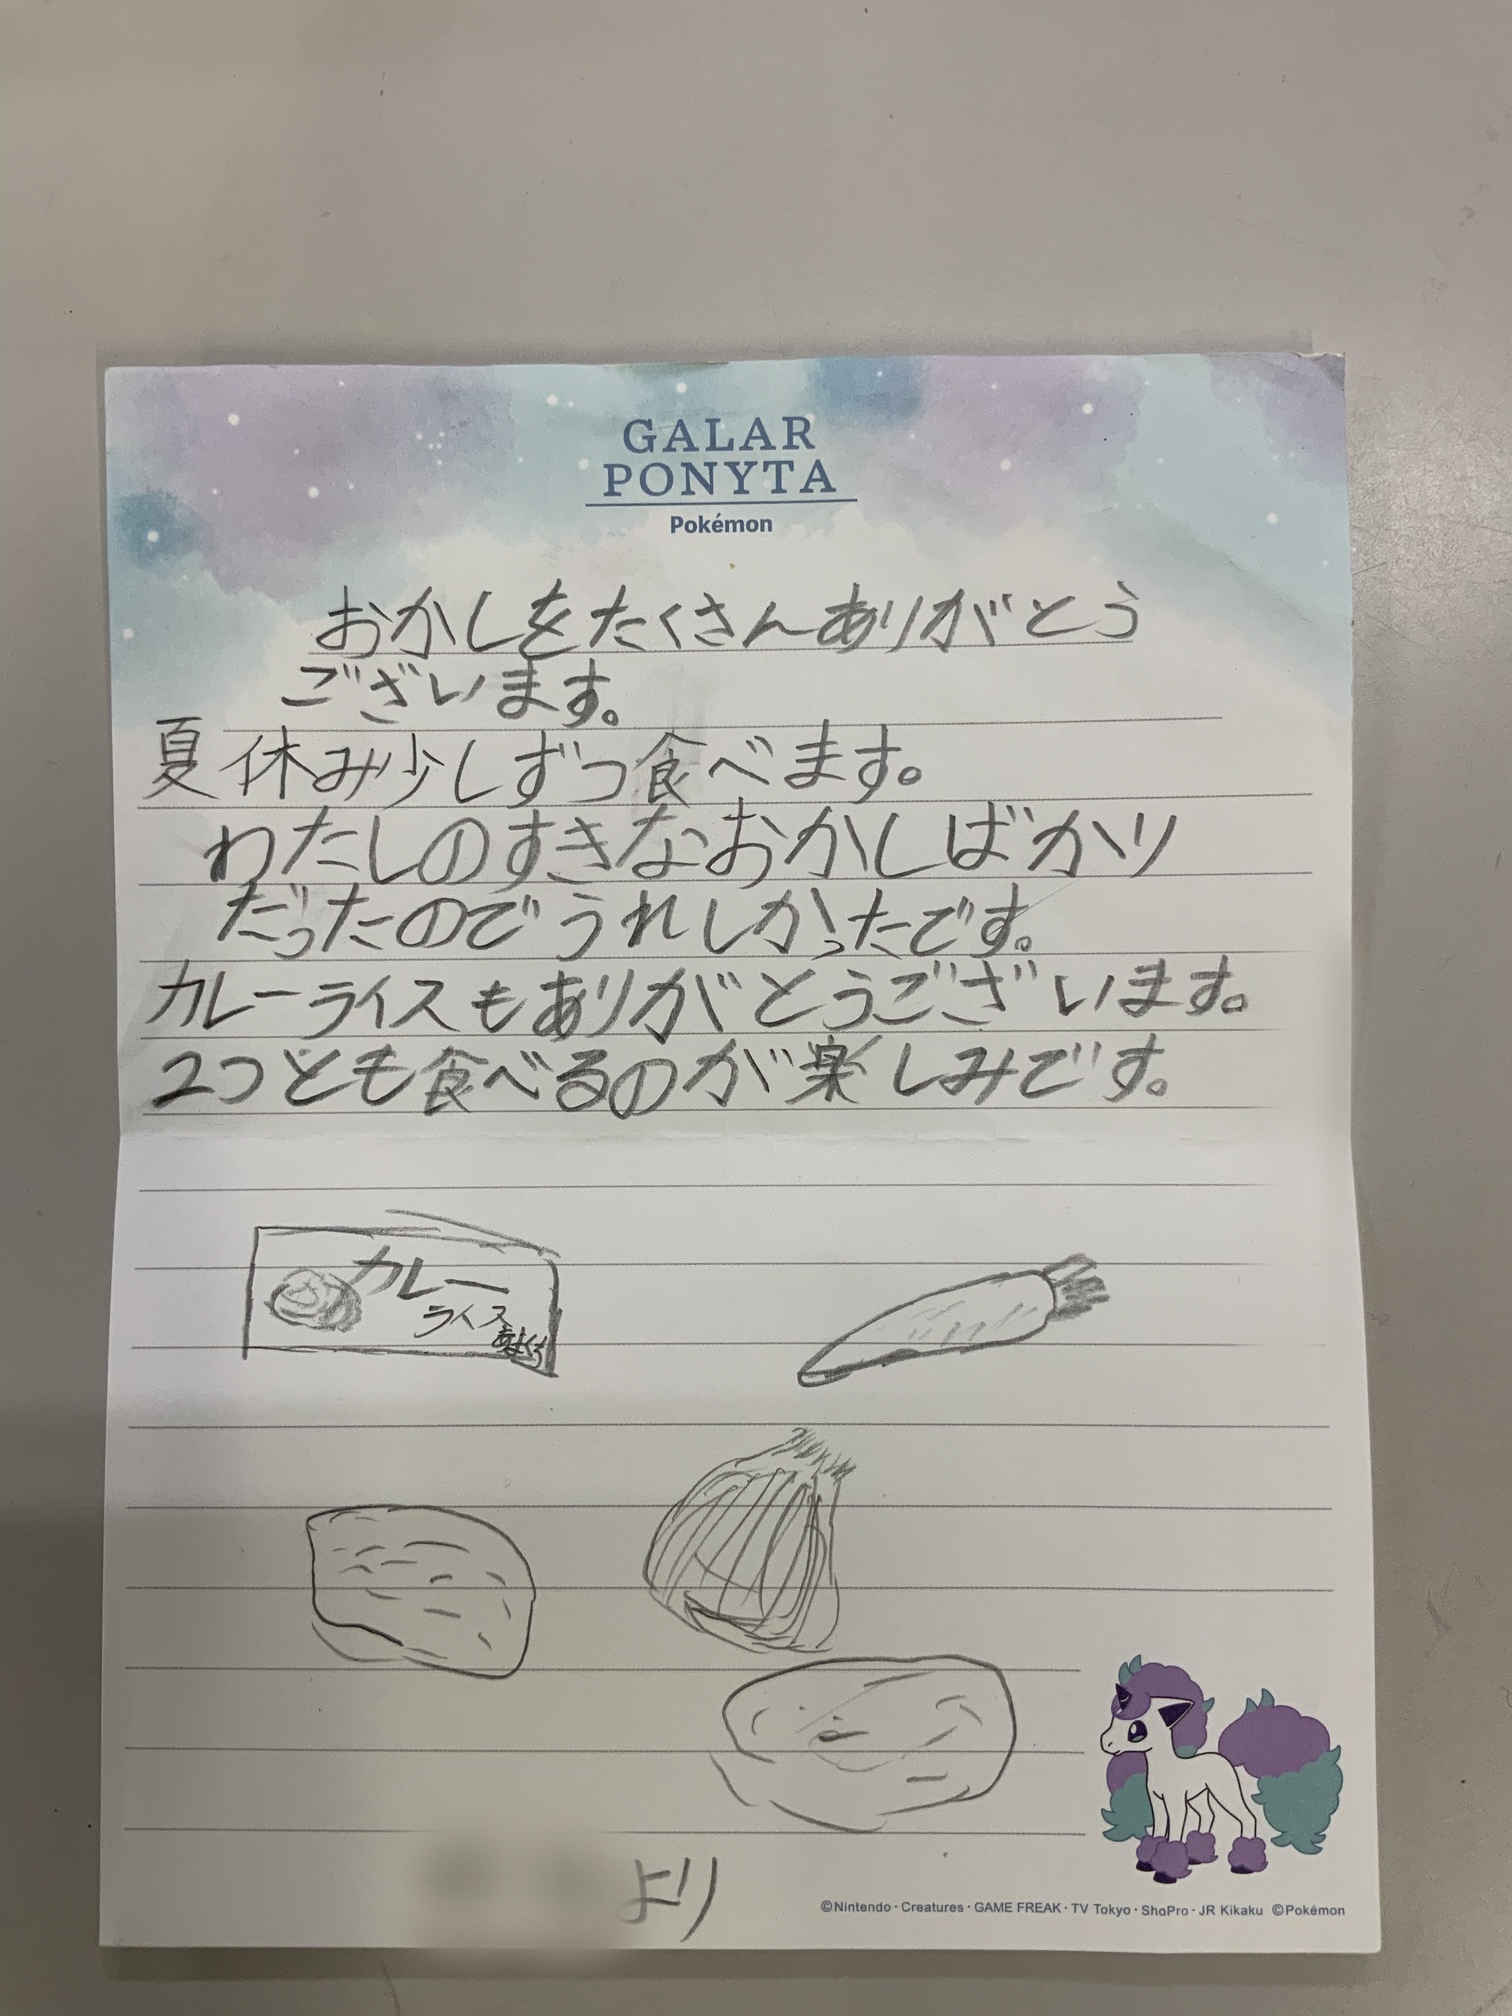 GALAR
PONYTA
Pokémon
おかしをたくさんありがとう
ございます。
夏休み少しずつ食べます。
わたしのすきなおかしばかり
だったのでうれしかったです。
カレーライスもありがとうございます。
2つとも食べるのが楽しみです。
カレー
ライス
あまくち
より
©Nintendo・Creatures・GAME FREAK・TV Tokyo・ShoPro・JR Kikaku ©Pokémon